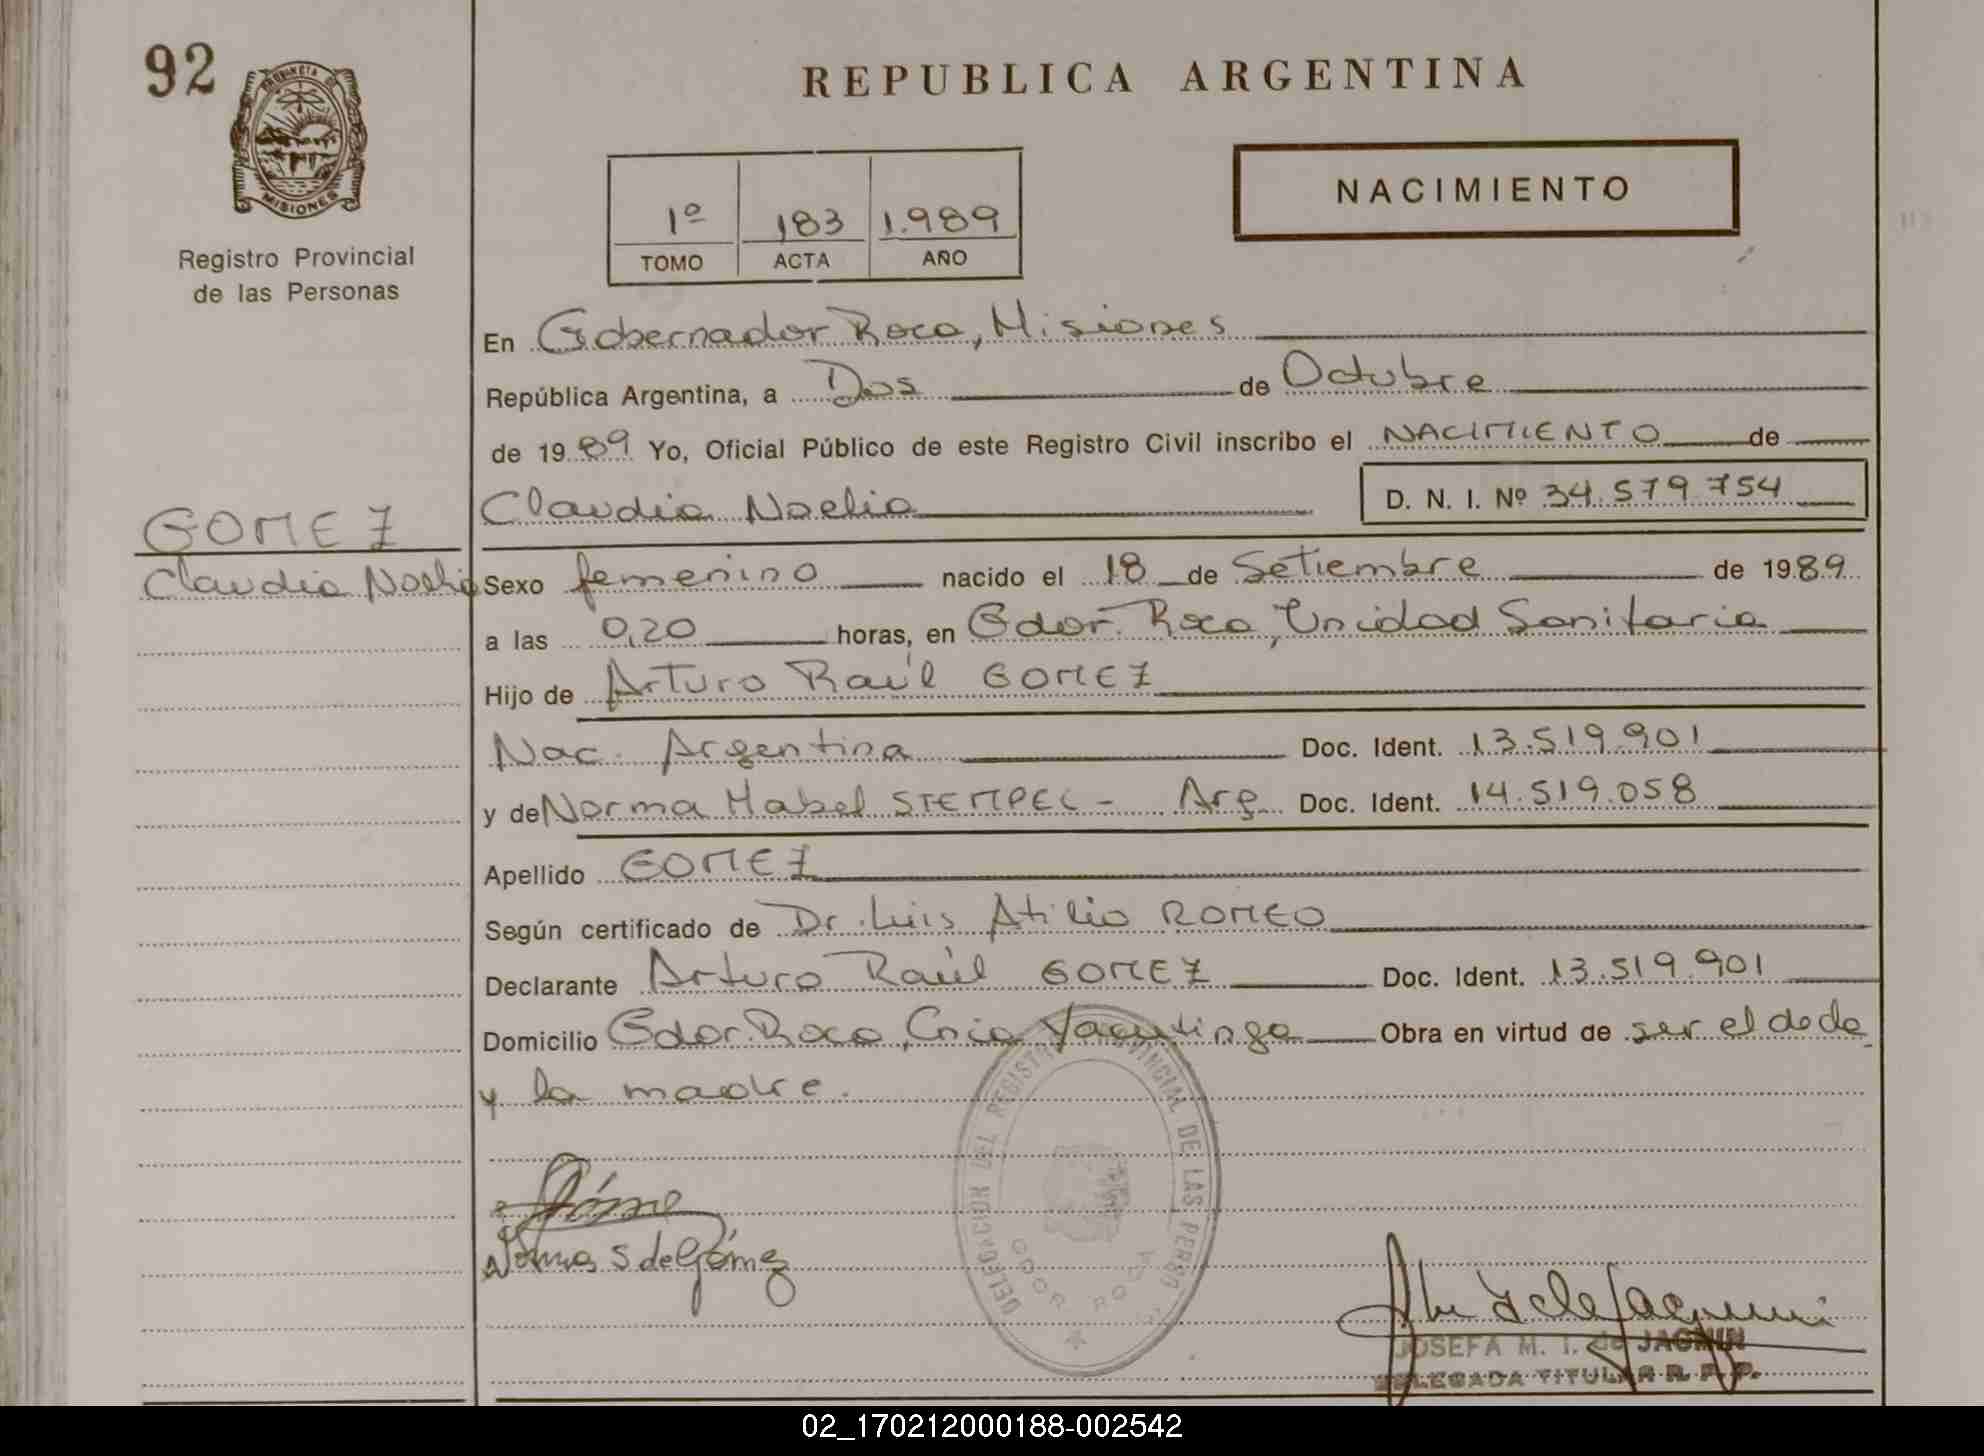 92
PROVINCIA DE
MISIONES
Registro Provincial
de las Personas
REPUBLICA ARGENTINA
1º 183 1.989
TOMO ACTA AÑO
NACIMIENTO
En Gobernador Roca, Misiones
República Argentina, a Dos de Octubre
de 1989 Yo, Oficial Público de este Registro Civil inscribo el NACIMIENTO de
Claudia Noelia D. N. I. Nº 34.579.754
GOMEZ
Claudia Noelia
Sexo femenino nacido el 18 de Setiembre de 1989
a las 0,20 horas, en Gdor. Roca, Unidad Sanitaria
Hijo de Arturo Raúl GOMEZ
Nac. Argentina Doc. Ident. 13.519.901
y de Norma Mabel STEMPEL - Arg Doc. Ident. 14.519.058
Apellido GOMEZ
Según certificado de Dr. Luis Atilio ROMEO
Declarante Arturo Raúl GOMEZ Doc. Ident. 13.519.901
Domicilio Gdor. Roca, Cnia Yacutinga Obra en virtud de ser el dcte
y la madre.
DELEGACION DEL REGISTRO PROVINCIAL DE LAS PERSO
GDOR ROCA
Norma S de Gómez
JOSEFA M. I. de JAGMIN
DELEGADA TITULAR R. P. P.
02_170212000188-002542